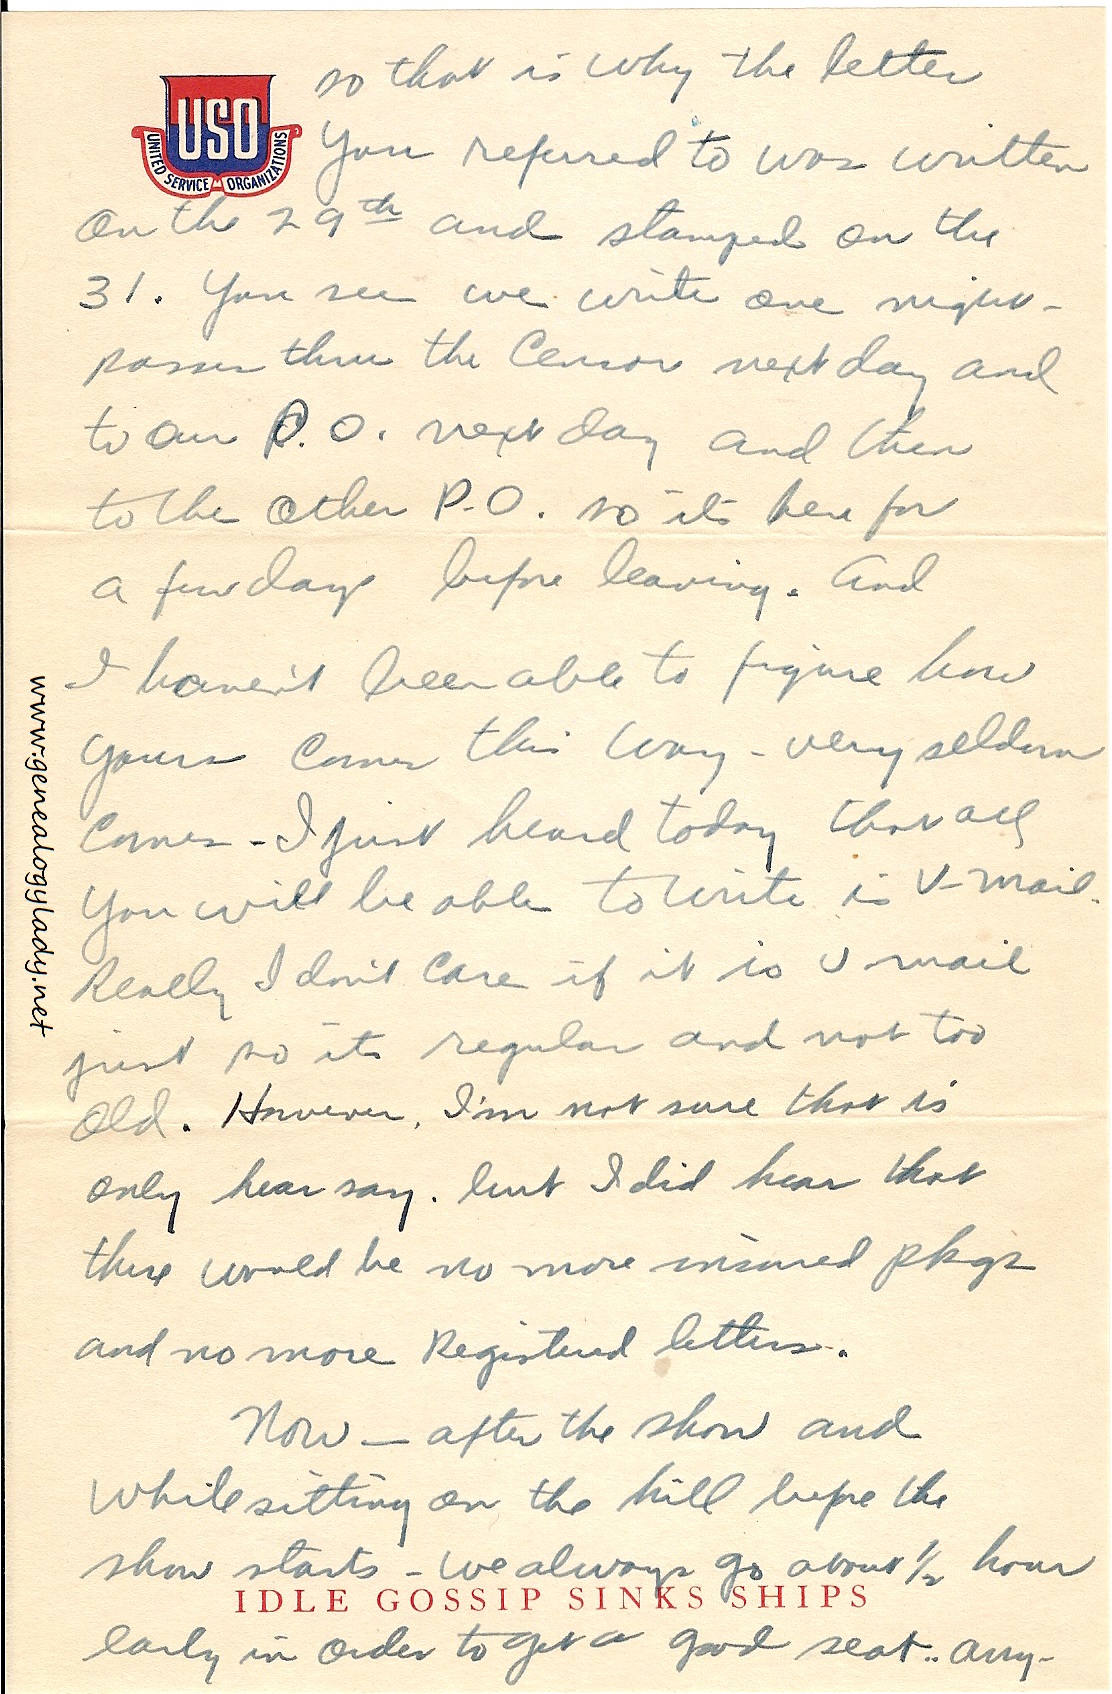 USO
UNITED SERVICE ORGANIZATIONS
so that is why the letter
you referred to was written
on the 29th and stamped on the
31. You see we write one night -
passes thru the Censor next day and
to our P.O. next day and then
to the other P.O. so its here for
a few days before leaving. And
I haven't been able to figure how
yours comes this way - very seldom
comes - I just heard today that all
you will be able to write is V-mail.
Really I don't care if it is V mail
just so its regular and not too
old. However, I'm not sure that is
only hear say. but I did hear that
there would be no more insured pkgs
and no more Registered letters.
Now — after the show and
while sitting on the hill before the
show starts - we always go about 1/2 hour
IDLE GOSSIP SINKS SHIPS
early in order to get a good seat.. any-
www.genealogylady.net